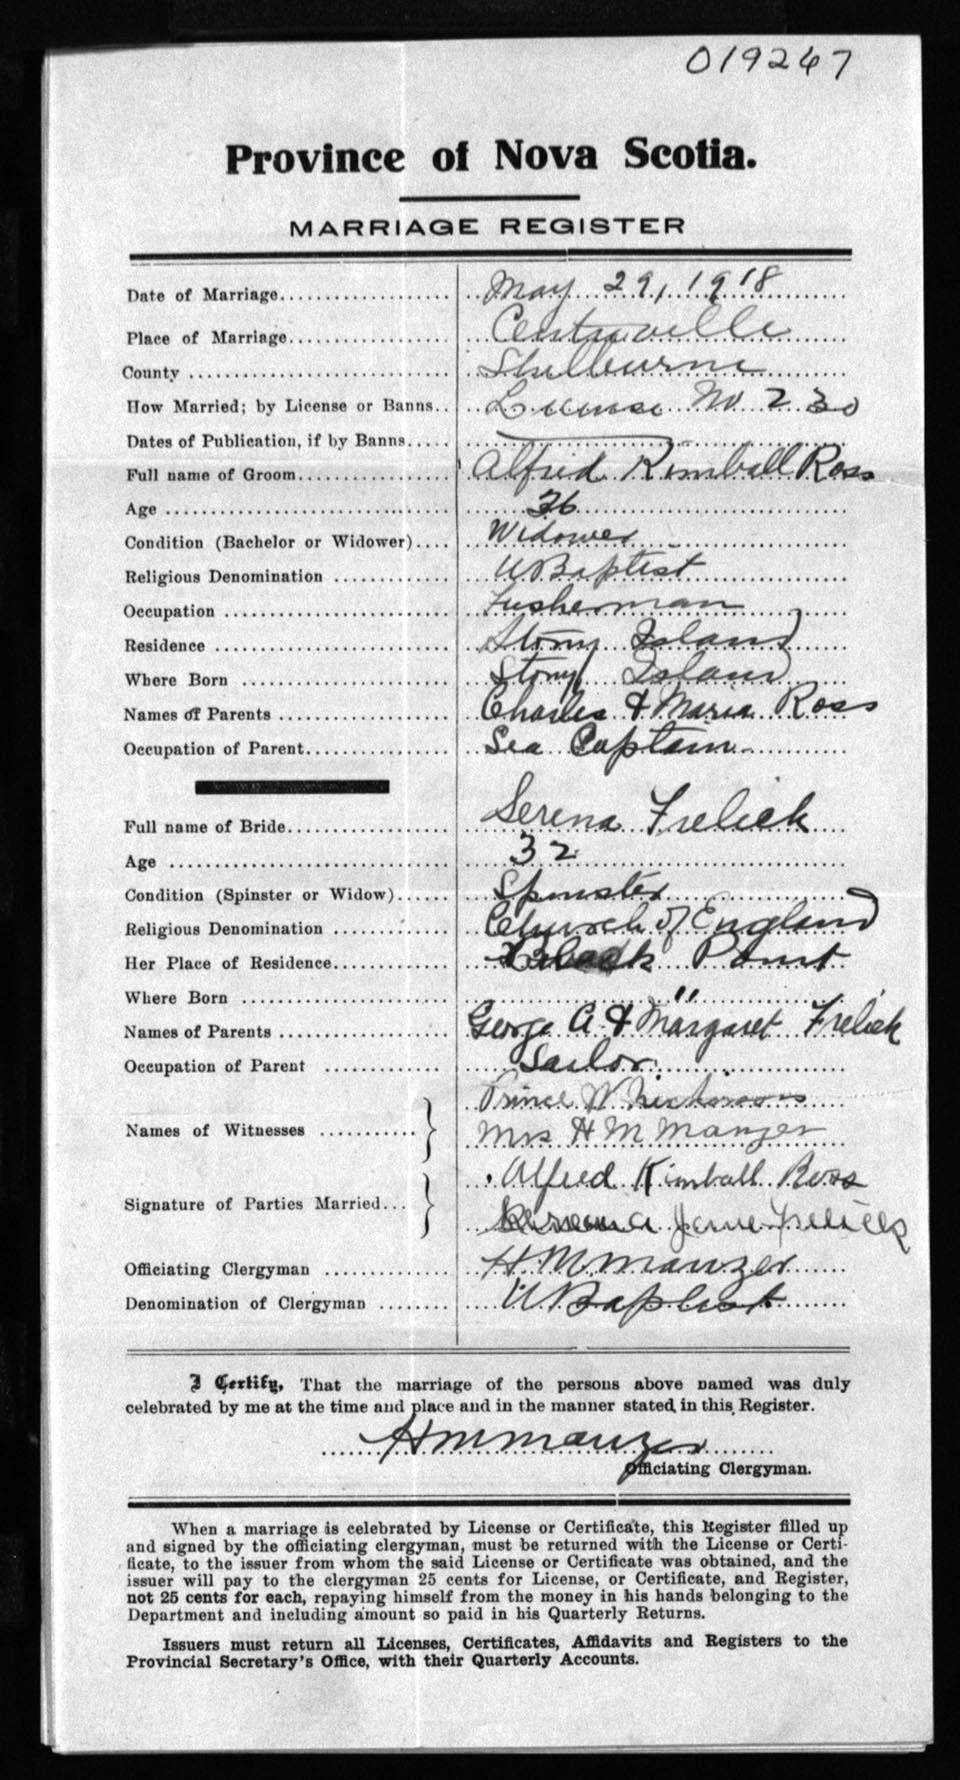 019247
Province of Nova Scotia.
MARRIAGE REGISTER
Date of Marriage May 29, 1918
Place of Marriage Centreville
County Shelburne
How Married; by License or Banns License No 230
Dates of Publication, if by Banns
Full name of Groom Alfred Kimball Ross
Age 36
Condition (Bachelor or Widower) Widower
Religious Denomination U Baptist
Occupation Fisherman
Residence Stony Island
Where Born Stony Island
Names of Parents Charles & Maria Ross
Occupation of Parent Sea Captain
Full name of Bride Serena Frelick
Age 32
Condition (Spinster or Widow) Spinster
Religious Denomination Church of England
Her Place of Residence Black Point
Where Born " "
Names of Parents George A & Margaret Frelick
Occupation of Parent Sailor
Prince W
Names of Witnesses
Mrs H M Manzer
Alfred Kimball Ross
Signature of Parties Married
Jane Frelick
Officiating Clergyman H M Manzer
Denomination of Clergyman U Baptist
I Certify, That the marriage of the persons above named was duly
celebrated by me at the time and place and in the manner stated in this Register.
H M Manzer
Officiating Clergyman.
When a marriage is celebrated by License or Certificate, this Register filled up
and signed by the officiating clergyman, must be returned with the License or Certi-
ficate, to the issuer from whom the said License or Certificate was obtained, and the
issuer will pay to the clergyman 25 cents for License, or Certificate, and Register,
not 25 cents for each, repaying himself from the money in his hands belonging to the
Department and including amount so paid in his Quarterly Returns.
Issuers must return all Licenses, Certificates, Affidavits and Registers to the
Provincial Secretary's Office, with their Quarterly Accounts.